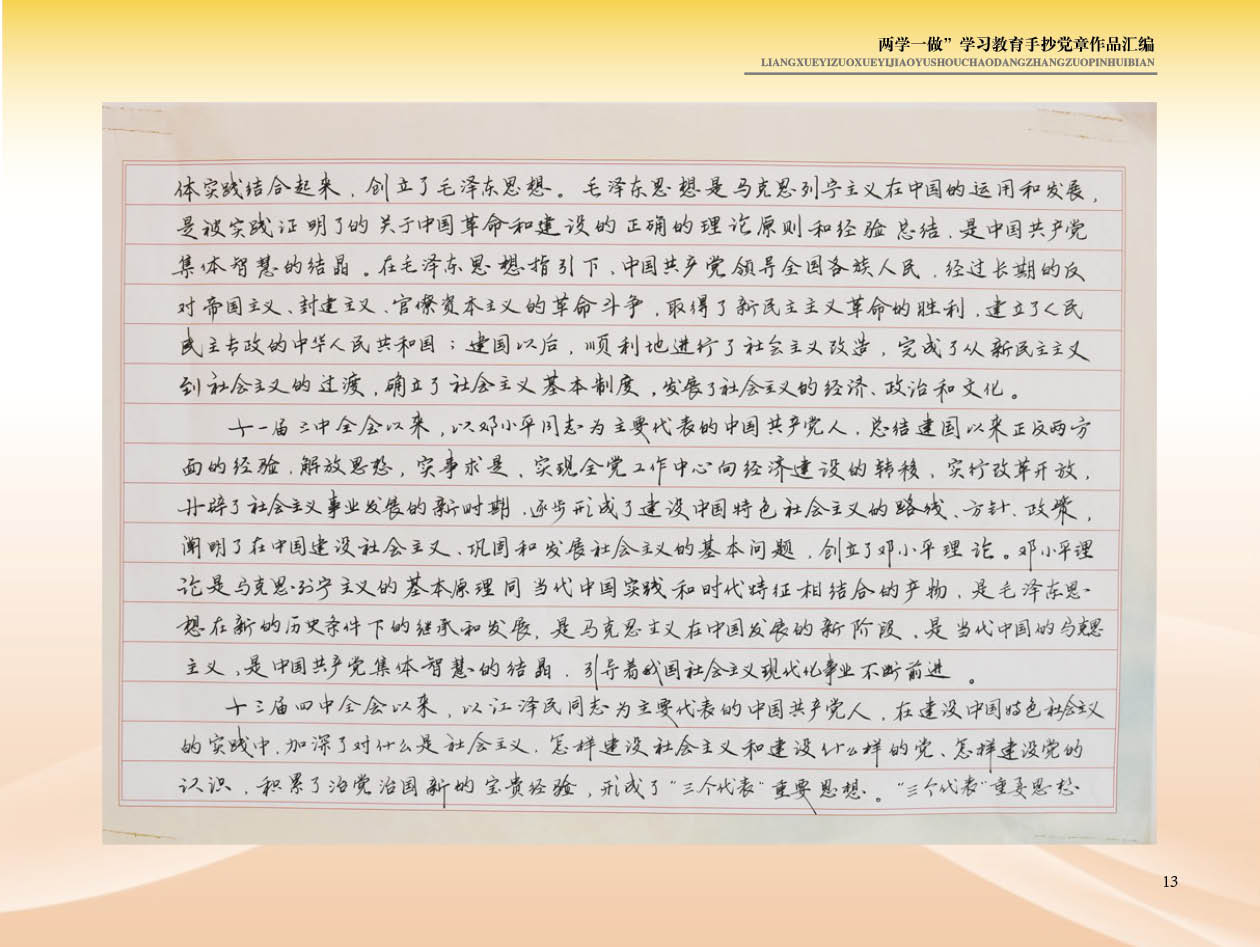 两学一做”学习教育手抄党章作品汇编
LIANGXUEYIZUOXUEYIJIAOYUSHOUCHAODANGZHANGZUOPINHUIBIAN
体实践结合起来，创立了毛泽东思想。毛泽东思想是马克思列宁主义在中国的运用和发展，
是被实践证明了的关于中国革命和建设的正确的理论原则和经验总结，是中国共产党
集体智慧的结晶。在毛泽东思想指引下，中国共产党领导全国各族人民，经过长期的反
对帝国主义、封建主义、官僚资本主义的革命斗争，取得了新民主主义革命的胜利，建立了人民
民主专政的中华人民共和国；建国以后，顺利地进行了社会主义改造，完成了从新民主主义
到社会主义的过渡，确立了社会主义基本制度，发展了社会主义的经济、政治和文化。
十一届三中全会以来，以邓小平同志为主要代表的中国共产党人，总结建国以来正反两方
面的经验，解放思想，实事求是，实现全党工作中心向经济建设的转移，实行改革开放，
开辟了社会主义事业发展的新时期，逐步形成了建设中国特色社会主义的路线、方针、政策，
阐明了在中国建设社会主义、巩固和发展社会主义的基本问题，创立了邓小平理论。邓小平理
论是马克思列宁主义的基本原理同当代中国实践和时代特征相结合的产物，是毛泽东思
想在新的历史条件下的继承和发展，是马克思主义在中国发展的新阶段，是当代中国的马克思
主义，是中国共产党集体智慧的结晶，引导着我国社会主义现代化事业不断前进。
十三届四中全会以来，以江泽民同志为主要代表的中国共产党人，在建设中国特色社会主义
的实践中，加深了对什么是社会主义、怎样建设社会主义和建设什么样的党、怎样建设党的
认识，积累了治党治国新的宝贵经验，形成了“三个代表”重要思想。“三个代表”重要思想
13